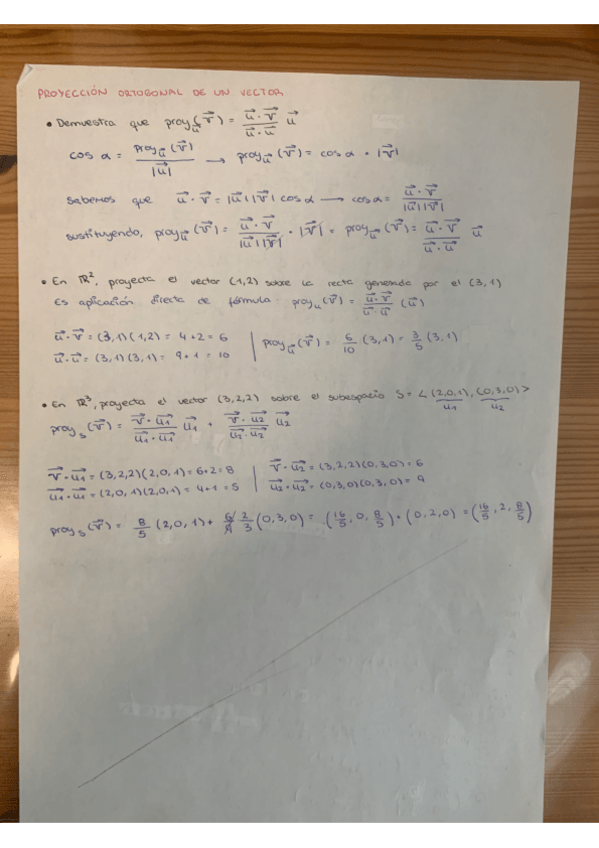 PROYECCIÓN ORTOGONAL DE UN VECTOR
• Demuestra que proy_u⃗(v⃗) = (u⃗ · v⃗)/(u⃗ · u⃗) u⃗
cos α = proy_u⃗(v⃗)/|u⃗| → proy_u⃗(v⃗) = cos α · |v⃗|
Sabemos que u⃗ · v⃗ = |u⃗||v⃗| cos α → cos α = (u⃗ · v⃗)/(|u⃗||v⃗|)
Sustituyendo, proy_u⃗(v⃗) = (u⃗ · v⃗)/(|u⃗||v⃗|) · |v⃗| = proy_u⃗(v⃗) = (u⃗ · v⃗)/(u⃗ · u⃗) u⃗
• En ℝ², proyecta el vector (1,2) sobre la recta generada por el (3,1)
Es aplicación directa de fórmula · proy_u(v⃗) = (u⃗ · v⃗)/(u⃗ · u⃗) (u⃗)
u⃗ · v⃗ = (3,1)(1,2) = 4+2 = 6 | proy_u⃗(v⃗) = 6/10 (3,1) = 3/5 (3,1)
u⃗ · u⃗ = (3,1)(3,1) = 9+1 = 10
• En ℝ³, proyecta el vector (3,2,2) sobre el subespacio S = <(2,0,1), (0,3,0)>
u1 u2
proy_S(v⃗) = (v⃗ · u1⃗)/(u1⃗ · u1⃗) u1⃗ + (v⃗ · u2⃗)/(u2⃗ · u2⃗) u2⃗
v⃗ · u1⃗ = (3,2,2)(2,0,1) = 6+2 = 8 | v⃗ · u2⃗ = (3,2,2)(0,3,0) = 6
u1⃗ · u1⃗ = (2,0,1)(2,0,1) = 4+1 = 5 | u2⃗ · u2⃗ = (0,3,0)(0,3,0) = 9
proy_S(v⃗) = 8/5 (2,0,1) + 6/9 2/3 (0,3,0) = (16/5, 0, 8/5) + (0,2,0) = (16/5, 2, 8/5)